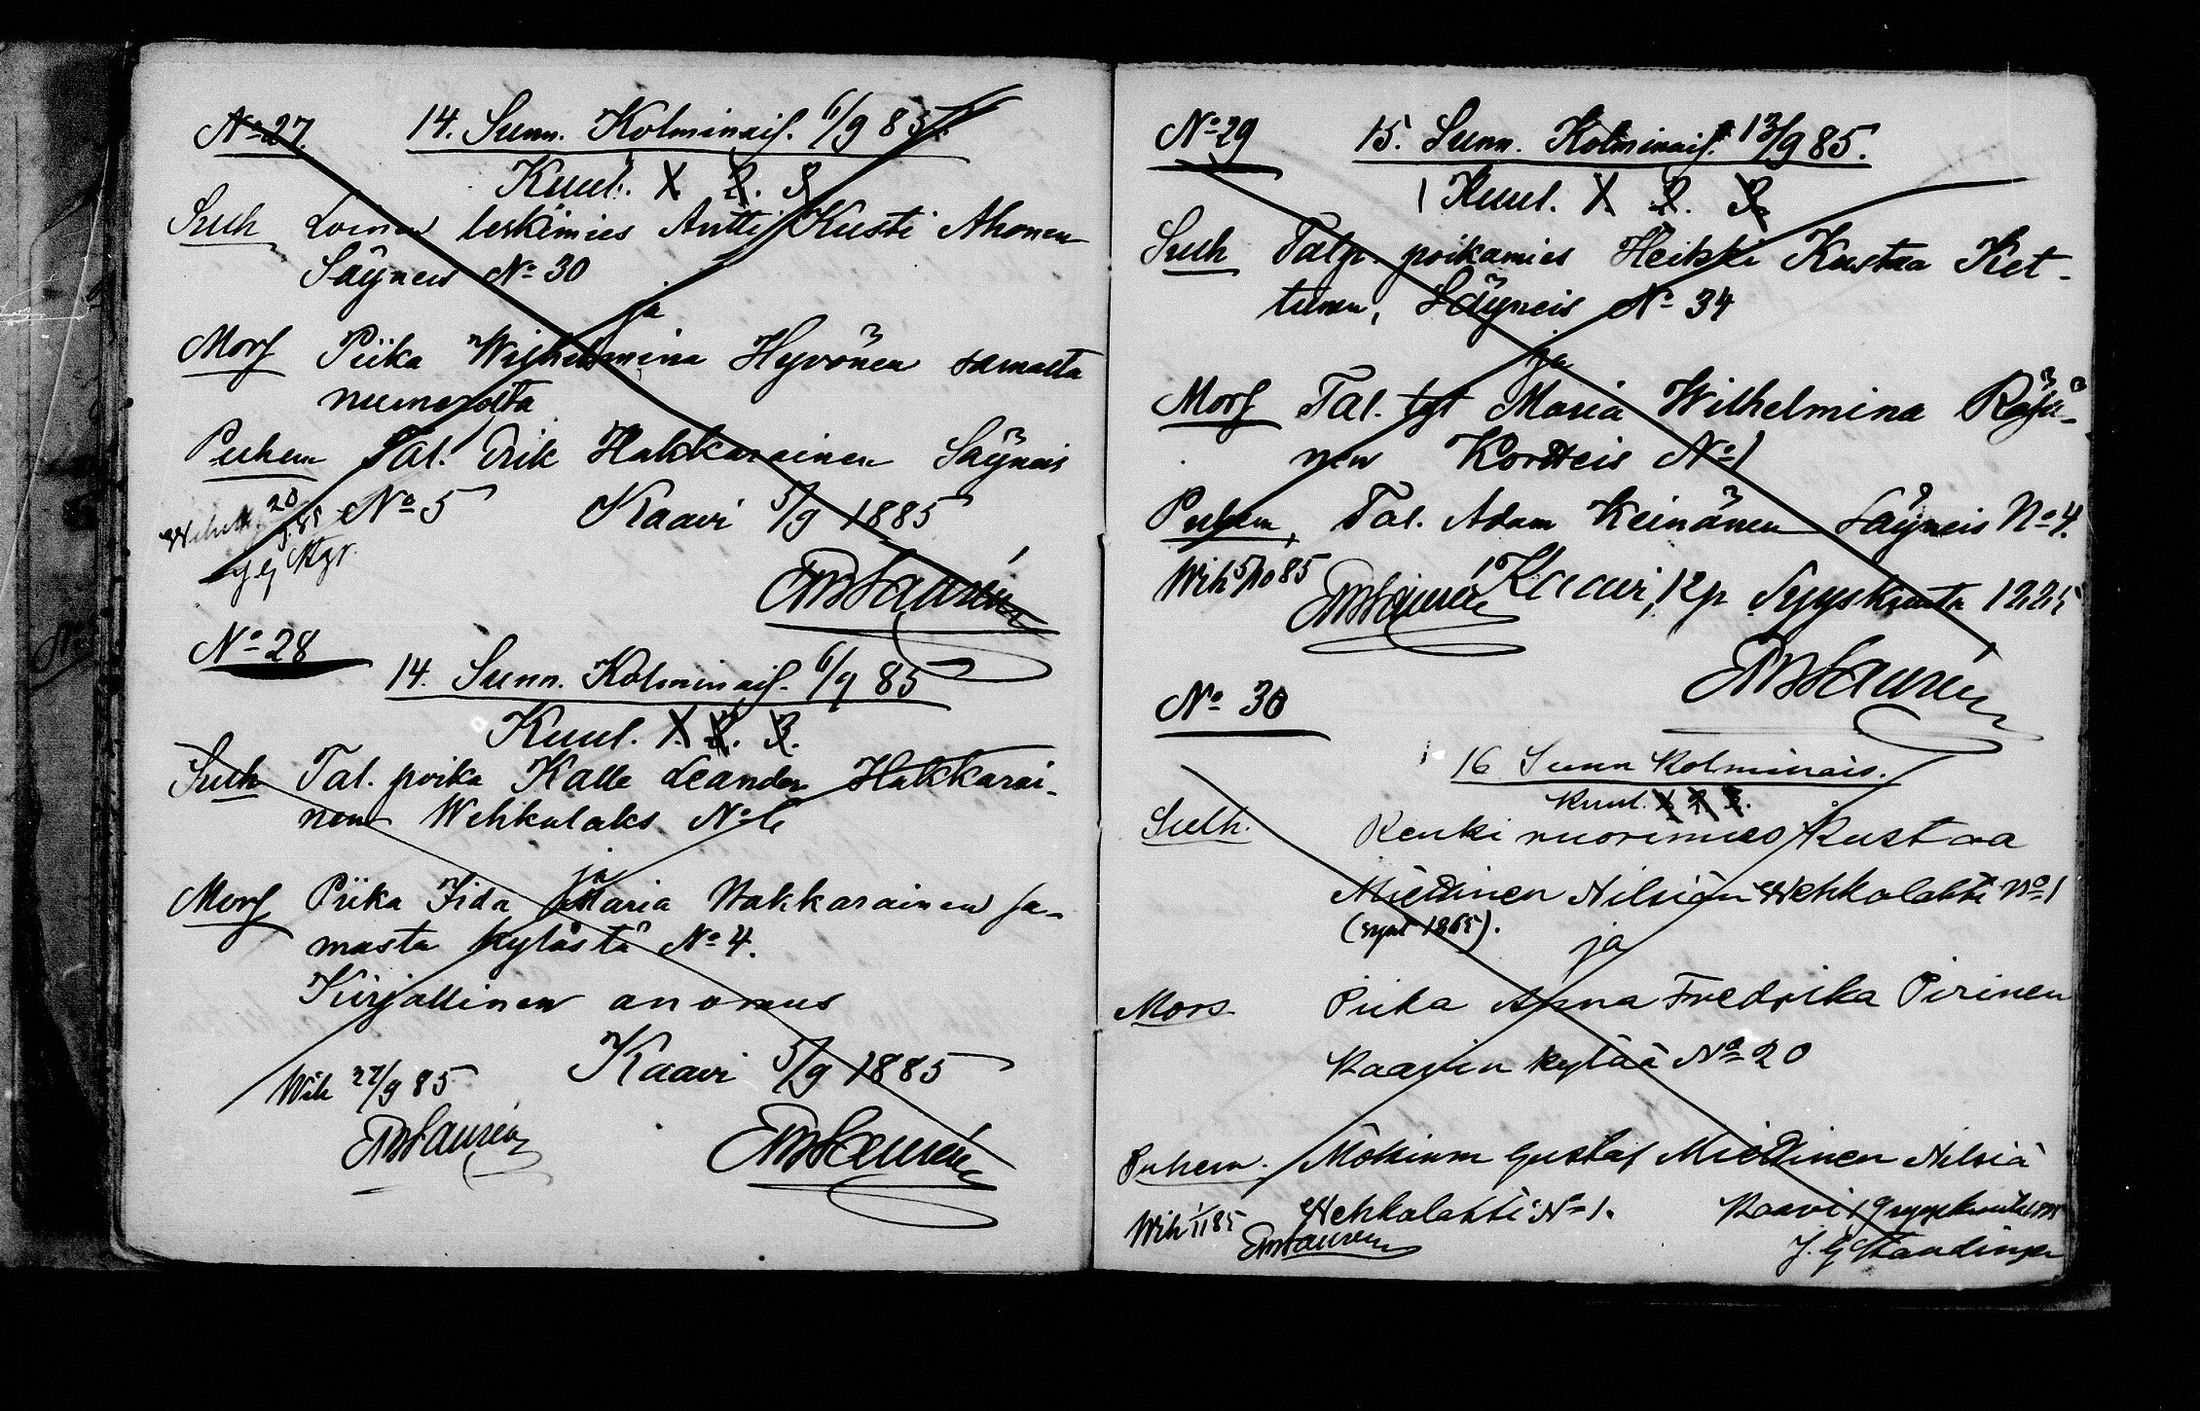 No 27. 14. Sunn. Kolminais. 6/9 85.
Kuul. 1. 2. 3.
Sulh Loinen leskimies Antti Kusti Ahonen
Säyneis No 30
ja
Mors Piika Wilhelmina Hyvönen samalta
numerolta
Puhem Tal. Erik Hakkarainen Säyneis
No 5 Kaavi 5/9 1885
20
9.85
No 28
14. Sunn. Kolminais. 6/9 85
Kuul. 1. 2. 3.
Sulh Tal. poika Kalle Leander Hakkarai-
nen Wehkalaks No 6
ja
Mors Piika Iida Maria Hakkarainen sa-
masta kylästä No 4.
Kirjallinen anomus
Kaavi 5/9 1885
Wih 27/9 85
EMLaurén
EMLaurén
No 29 15. Sunn. Kolminais. 13/9 85.
Kuul. 1. 2. 3.
Sulh Talp. poikamies Heikki Kustaa Ket-
tunen, Säyneis No 34
ja
Mors Tal. tyt Maria Wilhelmina Räjä-
nen Kortteis No 1
Puhem, Tal. Adam Keinänen Säyneis No 4.
Wih 5/10 85 Kaavi, 12 p Syyskuuta 1885
EMLaurén
EMLaurén
No 30
16 Sunn Kolminais.
Kuul. 1. 2. 3.
Sulh. Renki nuorimies Kustaa
Miettinen Nilsiän Wehkalahti No 1
(synt 1865).
ja
Mors Piika Anna Fredrika Pirinen
Kaavin kylää No 20
Puhem. Mökinm Gustaf Miettinen Nilsiä
Wehkalahti No 1. Kaavi 19 syyskuuta
Wih 1/11 85
EMLaurén